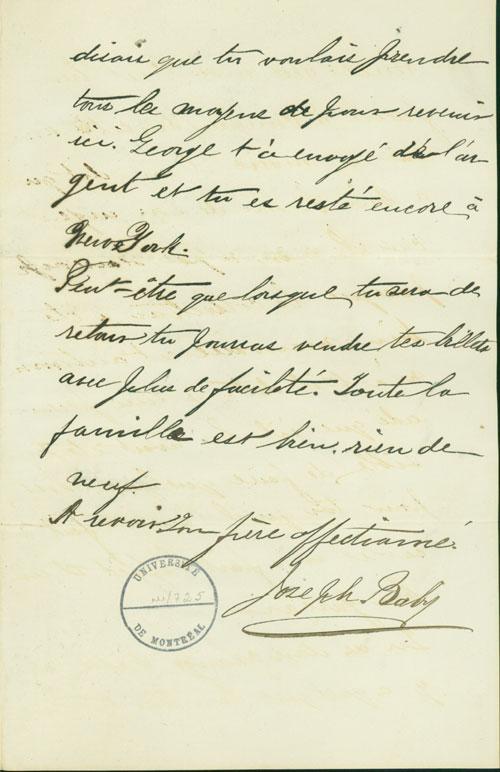 disais que tu voulais prendre
tous les moyens de pour revenir
ici. George t'a envoyé de l'ar
gent et tu es resté encore à
New York.
Peut-être que lorsque tu sera de
retour tu pourras vendre tes billets
avec plus de facilité. Toute la
famille est bien. rien de
neuf.
A revoir Ton frère affectionné.
Joseph Baby
UNIVERSITÉ
/725
DE MONTRÉAL